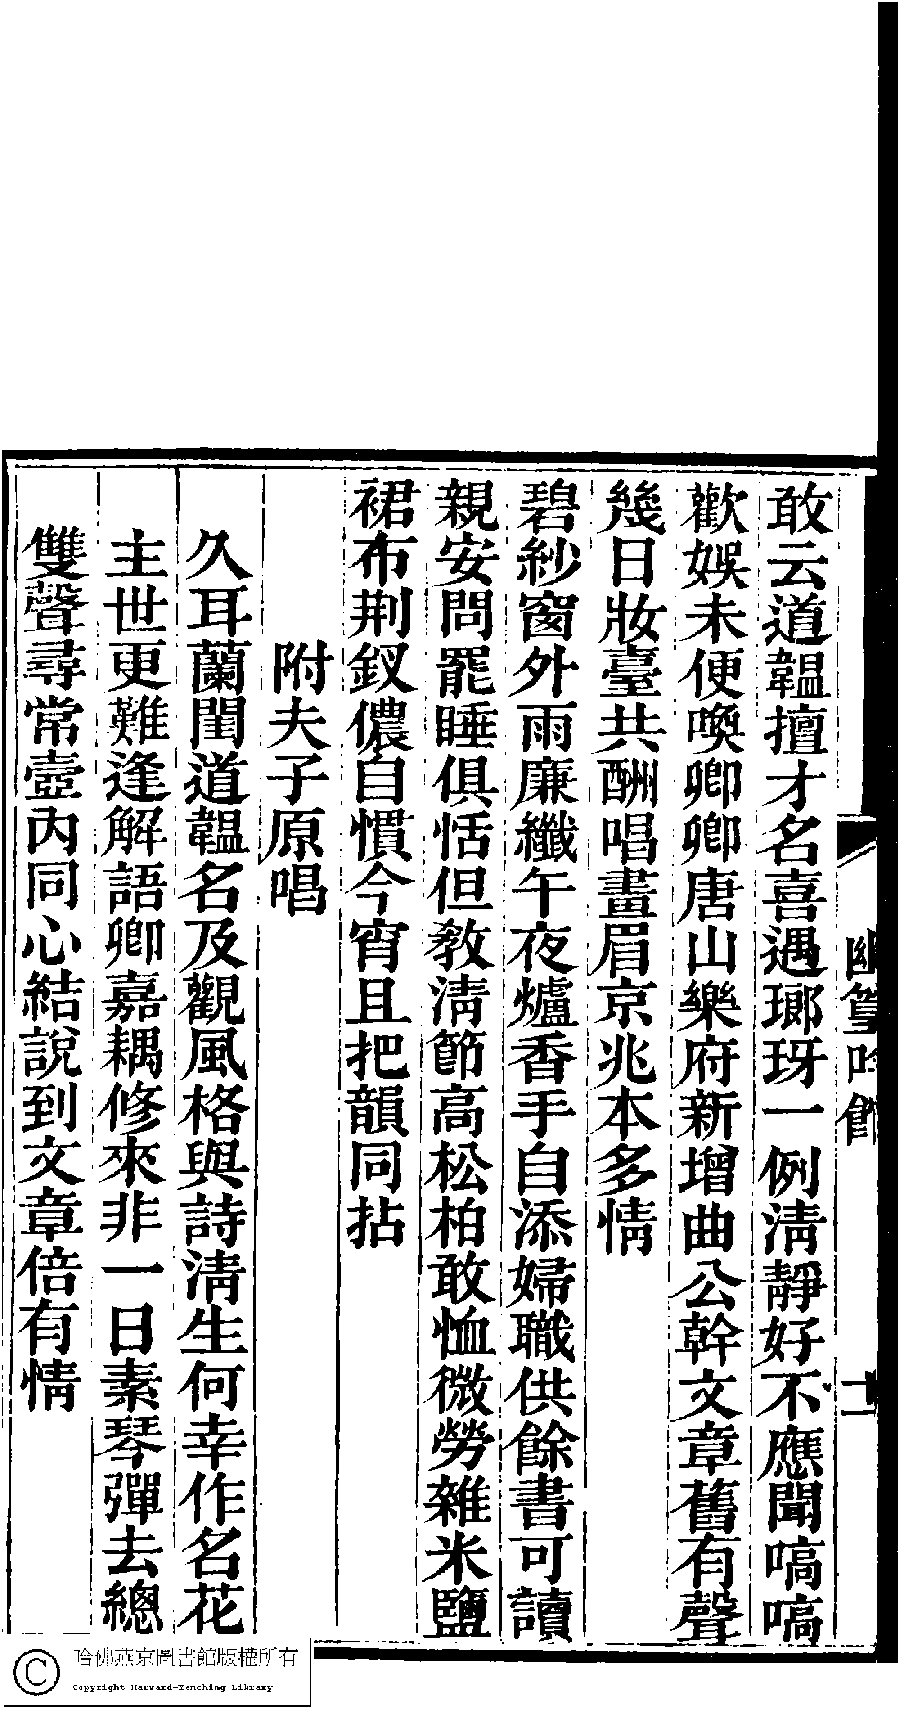 敢云道韞擅才名喜遇瑯玡一例淸靜好不應聞嗃嗃
歡娛未便喚卿卿唐山樂府新增曲公幹文章舊有聲
幾日妝臺共酬唱畫眉京兆本多情
碧紗窗外雨廉纖午夜爐香手自添婦職供餘書可讀
親安問罷睡俱恬但教淸節高松柏敢恤微勞雜米鹽
裙布荆釵儂自慣今宵且把韻同拈
附夫子原唱
久耳蘭閨道韞名及觀風格與詩淸生何幸作名花
主世更難逢解語卿嘉耦修來非一日素琴彈去總
雙聲尋常壼內同心結說到文章倍有情
幽篁吟館
哈佛燕京圖書館版權所有
Copyright Harvard-Yenching Library